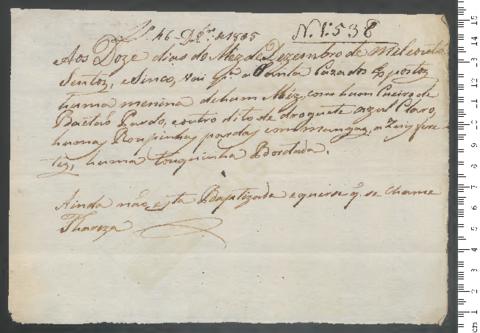 fl. 46 Dz.º de 1805
N. 1:538
Aos Doze dias do Mez de Dezembro de mil e oito
Sentos, e Sinco, vai pª a Santa Caza dos Expostos
huma menina de hum Mez, com hum Cueiro de
Baetaõ Pardo, e outro dito de droguete azul Claro,
humas Roupinhas pardas com mangas
huma touquinha Bordada.
Ainda naõ esta Baptizada e quer se q. se chame
Thareza